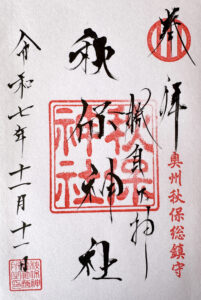 奉拝
奥州秋保総鎮守
秋保神社
秋保神社
令和七年十一月十一日